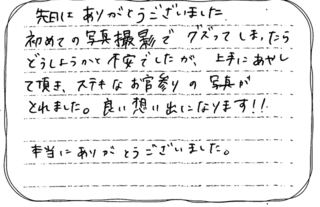 先日は ありがとうございました
初めての写真撮影で グズってしまったら
どうしようかと不安でしたが、上手にあやし
て頂き、ステキなお宮参りの写真が
とれました。良い想い出になります!!
本当にありがとうございました。